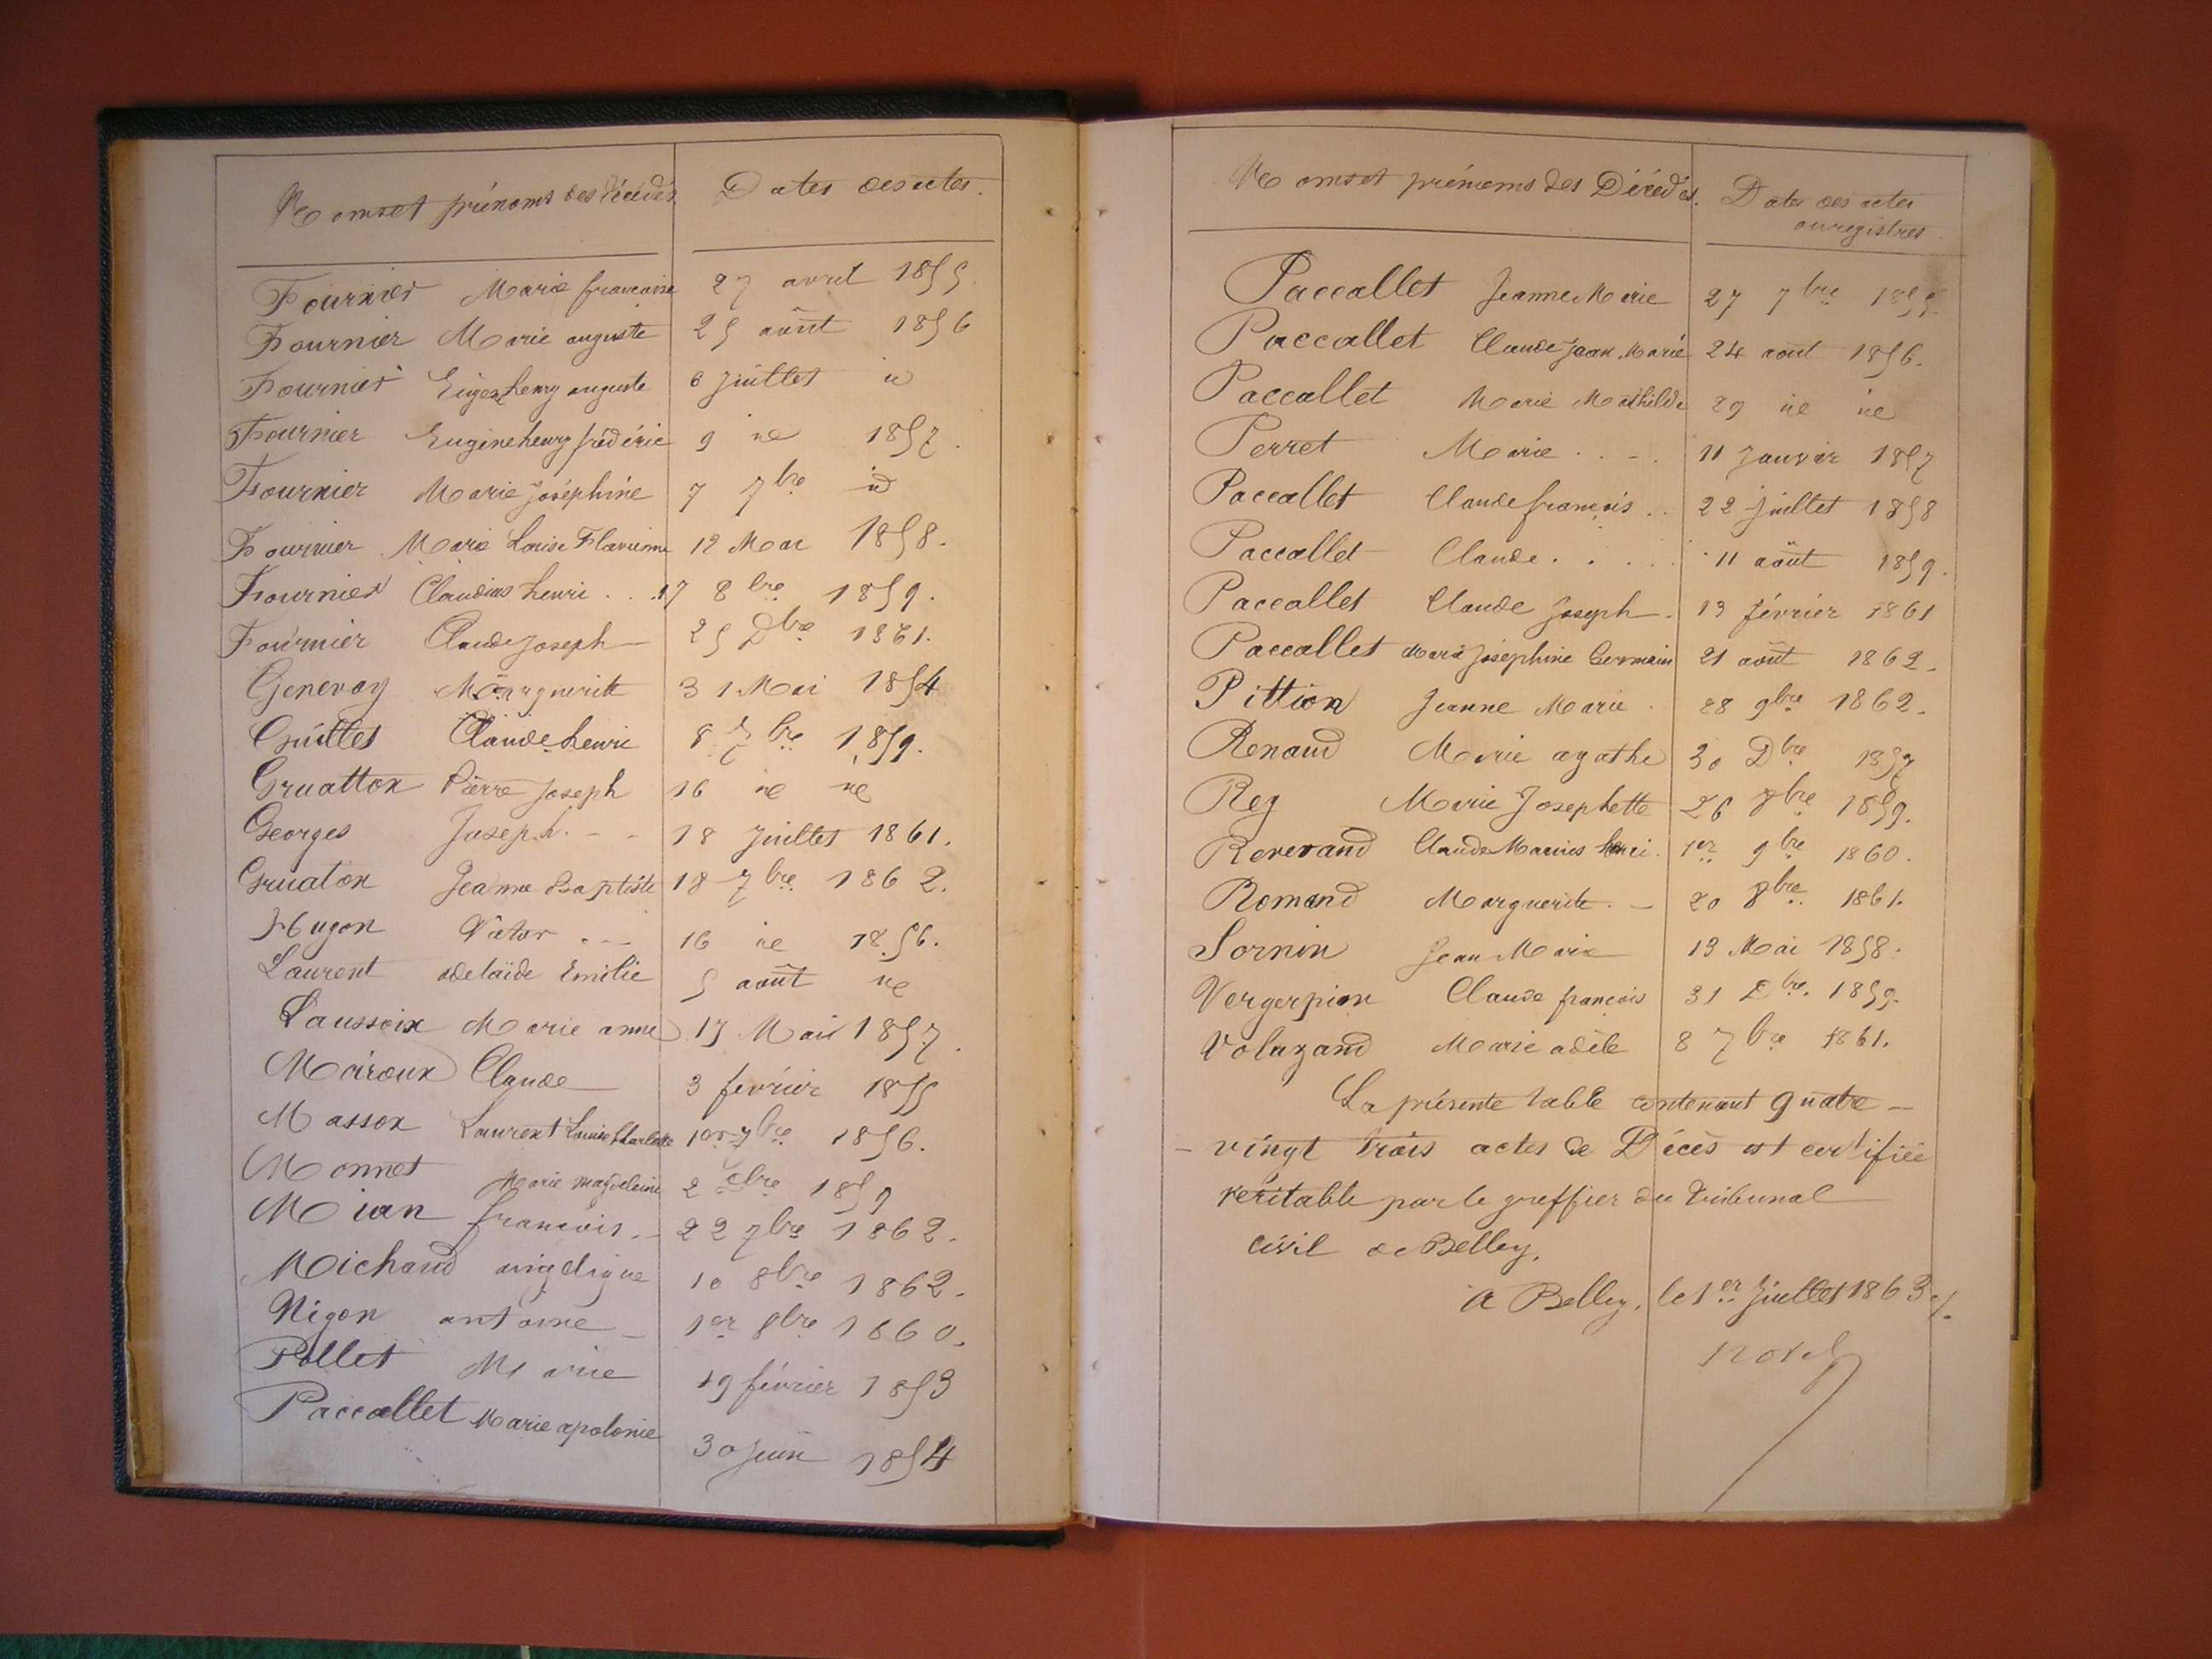 Noms et prénoms des décédés Dates des actes.
Fournier Marie françoise 27 avril 1855.
Fournier Marie auguste 25 août 1856
Fournier Eugen henry auguste 6 juillet id
Fournier Eugène henry frédéric 9 id 1857.
Fournier Marie Joséphine 7 7bre id
Fournier Marie Louise Flavienne 12 Mai 1858.
Fournier Claudius henri . . 17 8bre 1859.
Fournier Claude Joseph 25 Dbre 1861.
Genevay Marguerite 31 Mai 1854
Guillet Claude henri 8 7bre 1859.
Gruatton Pierre Joseph 16 id id
Georges Joseph. - - 18 Juillet 1861.
Gruaton Jeanne Baptiste 18 7bre 1862.
Hugon Victor . - 16 id 1856.
Laurent adelaïde Emilie 5 août id
Laussoix Marie anne 15 Mai 1857.
Mairoux Claude 3 février 1855
Masson Laurent Louise Charlotte 1er 7bre 1856.
Monnet Marie magdeleine 2 1859
Mian françois. - 22 7bre 1862.
Michaud angelique 10 8bre 1862.
Nigon antoine - 1er 8bre 1860.
Pollet Marie 19 février 1853
Paccallet Marie apolonie 30 Juin 1854
Noms et prénoms des Décédés. Dates des actes
ou registres
Paccallet Jeanne Marie 27 7bre 1855.
Paccallet Claude Jean Marie 24 août 1856.
Paccallet Marie Mathilde 29 id id
Perret Marie . . - . 11 Janvier 1857
Paccallet Claude françois . . 22 juillet 1858
Paccallet Claude . . . . 11 août 1859.
Paccallet Claude Joseph . 13 février 1861
Paccallet Marie Joséphine Germain 21 août 1862.
Pittion Jeanne Marie . 28 9bre 1862.
Renaud Marie agathe 30 Dbre 1857
Rey Marie Josephette 26 7bre 1859.
Reverand Claude Marius henri. 1er 9bre 1860.
Romand Marguerite. - 20 8bre 1861.
Sornin Jean Marie 13 Mai 1858.
Vergerpion Claude françois 31 Dbre. 1859.
Volazand Marie adèle 8 7bre 1861.
La présente table contenant quatre -
- vingt trois actes de Décès est certifiée
véritable par le greffier du tribunal
civil de Belley.
A Belley, le 1er Juillet 1863 ./.